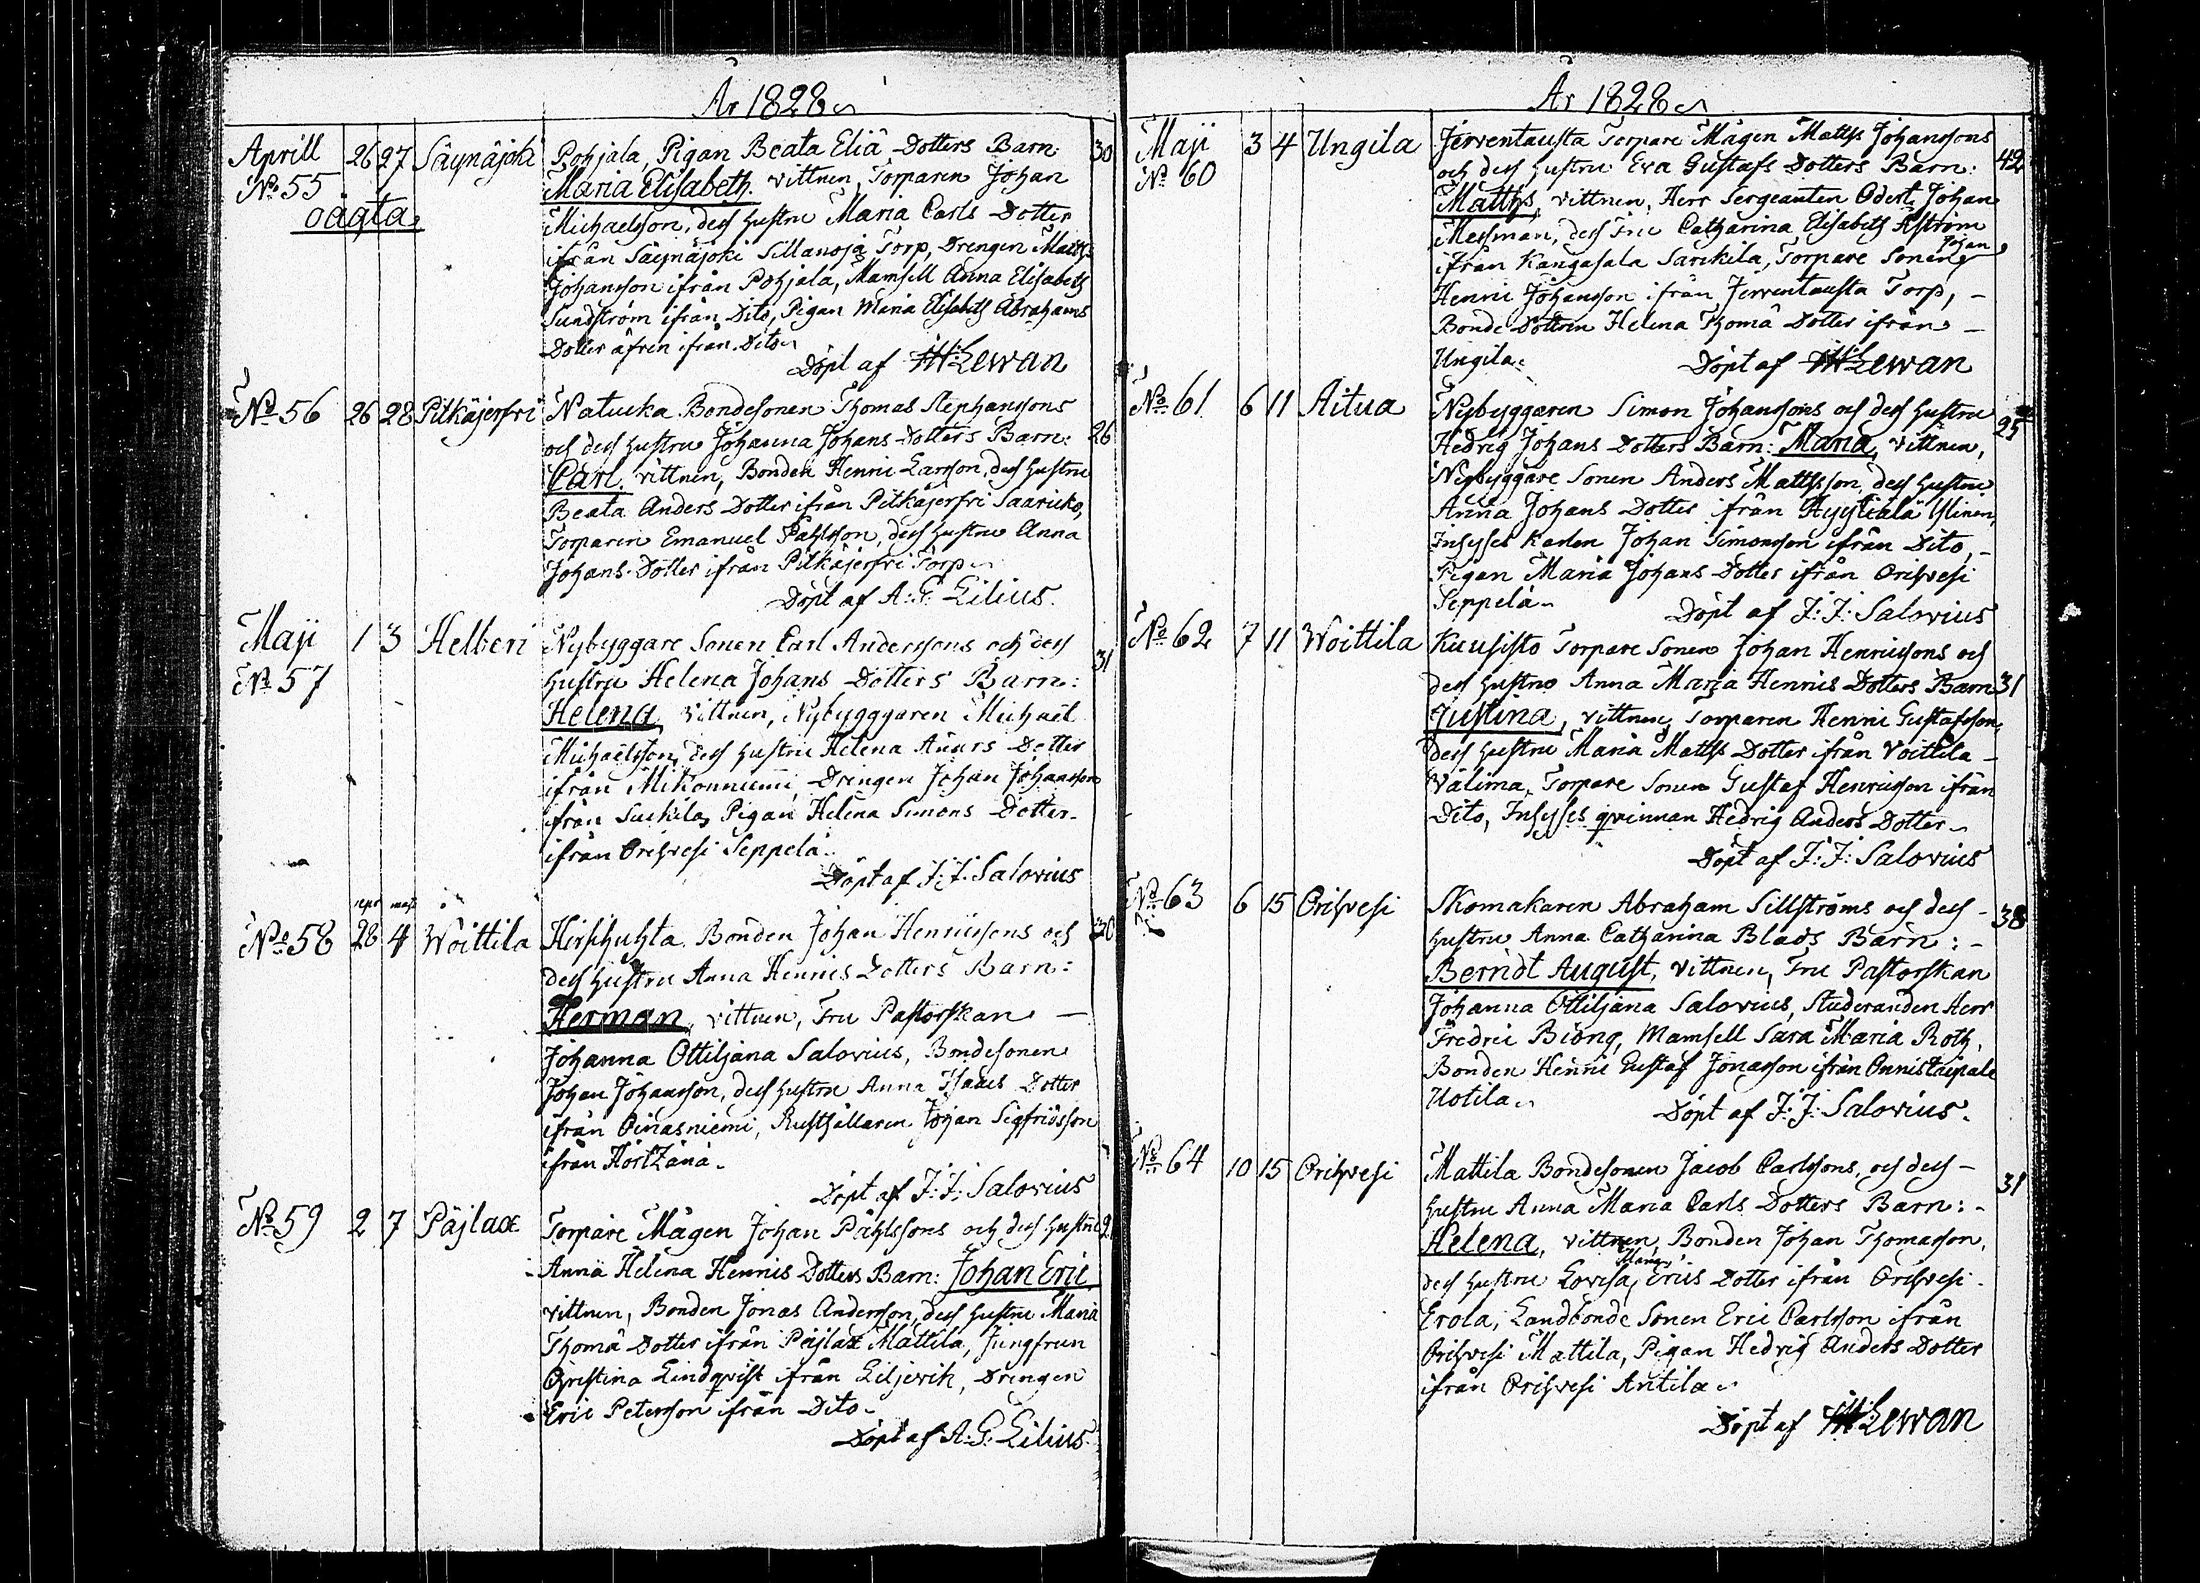 År 1828
Aprill 26 27 Säynäjoki Pohjala, Pigan Beata Eliä Dotters Barn: 30
No 55 Maria Elisabeth. vittnen, Torparen Johan
oägta Michaelsson, dess hustru Maria Carls Dotter
ifrån Säynäjoki Sillanoja Torp, Drengen Matts
Johansson ifrån Pohjala, Mamsell Anna Elisabeth
Sundström ifrån Dito, Pigan Maria Elisabeth Abrahams
Dotter äfven ifrån Dito
Döpt af Lewan
No 56 26 28 Pitkäjerfvi Natucka Bondesonen Thomas Stephanssons
och dess hustru Johanna Johans Dotters Barn: 26
Carl. vittnen, Bonden Henric Larsson, dess hustru
Beata Anders Dotter ifrån Pitkäjerfvi
Torparen Emanuel Påhlsson, dess hustru Anna
Johans Dotter ifrån Pitkäjerfvi Torp
Döpt af A: G: Lilius.
Maji 1 3 Helberi Nybyggare Sonen Carl Anderssons och dess 31
No 57 hustru Helena Johans Dotters Barn:
Helena, vittnen, Nybygggaren Michael
Michaelsson, dess hustru Helena Dotter
ifrån Mikonniemi, Drengen Johan Johansson
ifrån Suckila, Pigan Helena Simons Dotter
ifrån Orihvesi Seppelä.
Döpt af J: J: Salovius
apr maji
No 58 28 4 Woittila Hirsihuhta Bonden Johan Henricssons och 30
dess hustru Anna Henrics Dotters Barn:
Herman, vittnen, Fru Pastorskan —
Johanna Ottiljana Salovius, Bondesonen
Johan Johansson, dess hustru Anna Isaacs Dotter
ifrån Oinasniemi, Rusthållaren Johan Sigfridsson
ifrån
Döpt af J: J: Salovius
No 59 2 7 Päjlax Torpare Mågen Johan Påhlssons och dess hustru
Anna Helena Henrics Dotters Barn: Johan Eric
vittnen, Bonden Jonas Andersson, dess hustru Maria
Thomä Dotter ifrån Päjlax Mattila, Jungfrun
Christina Lindqvist ifrån Liljevik, Drengen
Eric Petersson ifrån Dito
Döpt af A: G: Lilius
År 1828
Maji 3 4 Ungila Jerventausta Torpare Mågen Matths Johanssons
No 60 och dess hustru Eva Gustafs Dotters Barn: 42
Matths, vittnen, Herr Sergeanten Odert Johan
Messman, dess Fru Catharina Elisabeth Åström
ifrån Kangasala Sarikila, Torpare Sonen Johan
Henric Johansson ifrån Jerventausta Torp, —
Bonde Dottren Helena Thomä Dotter ifrån —
Ungila.
Döpt af Lewan
No 61 6 11 Aitua Nybyggaren Simon Johanssons och dess hustru 25
Hedvig Johans Dotters Barn: Maria, vittnen,
Nybyggare Sonen Anders Matthsson, dess hustru
Anna Johans Dotter ifrån Hyytiälä Ylinen,
Inhyses Karlen Johan Simonsson ifrån Dito, —
Pigan Maria Johans Dotter ifrån Orihvesi
Seppelä
Döpt af J: J: Salovius
No 62 7 11 Woittila Kuusisto Torpare Sonen Johan Henricssons och
dess hustru Anna Maria Henrics Dotters Barn 31
Justina, vittnen, Torparen Henric Gustafsson,
dess hustru Maria Matths Dotter ifrån Voittila —
Välimä, Torpare Sonen Gustaf Henricsson ifrån
Dito, Inhyses qvinnan Hedvig Anders Dotter
Döpt af J: J: Salovius
No 63 6 15 Orihvesi Skomakaren Abraham Sillströms och dess - 38
hustru Anna Catharina Blads Barn: -
Berndt August, vittnen, Fru Pastorskan
Johanna Ottiljana Salovius, Studeranden Herr
Fredric Biong, Mamsell Sara Maria Roth,
Bonden Henric Gustaf Jonasson ifrån Onnistaipale
Uotila
Döpt af J: J: Salovius.
No 64 10 15 Orihvesi Mattila Bondesonen Jacob Carlssons, och dess — 31
hustru Anna Maria Carls Dotters Barn: -
Helena, vittnen, Bonden Johan Thomasson,
dess hustru Lovisa Maria Erics Dotter ifrån Orihvesi
Erola, Landbonde Sonen Eric Carlsson ifrån
Orihvesi Mattila, Pigan Hedvig Anders Dotter
ifrån Orihvesi Antila
Döpt af Lewan